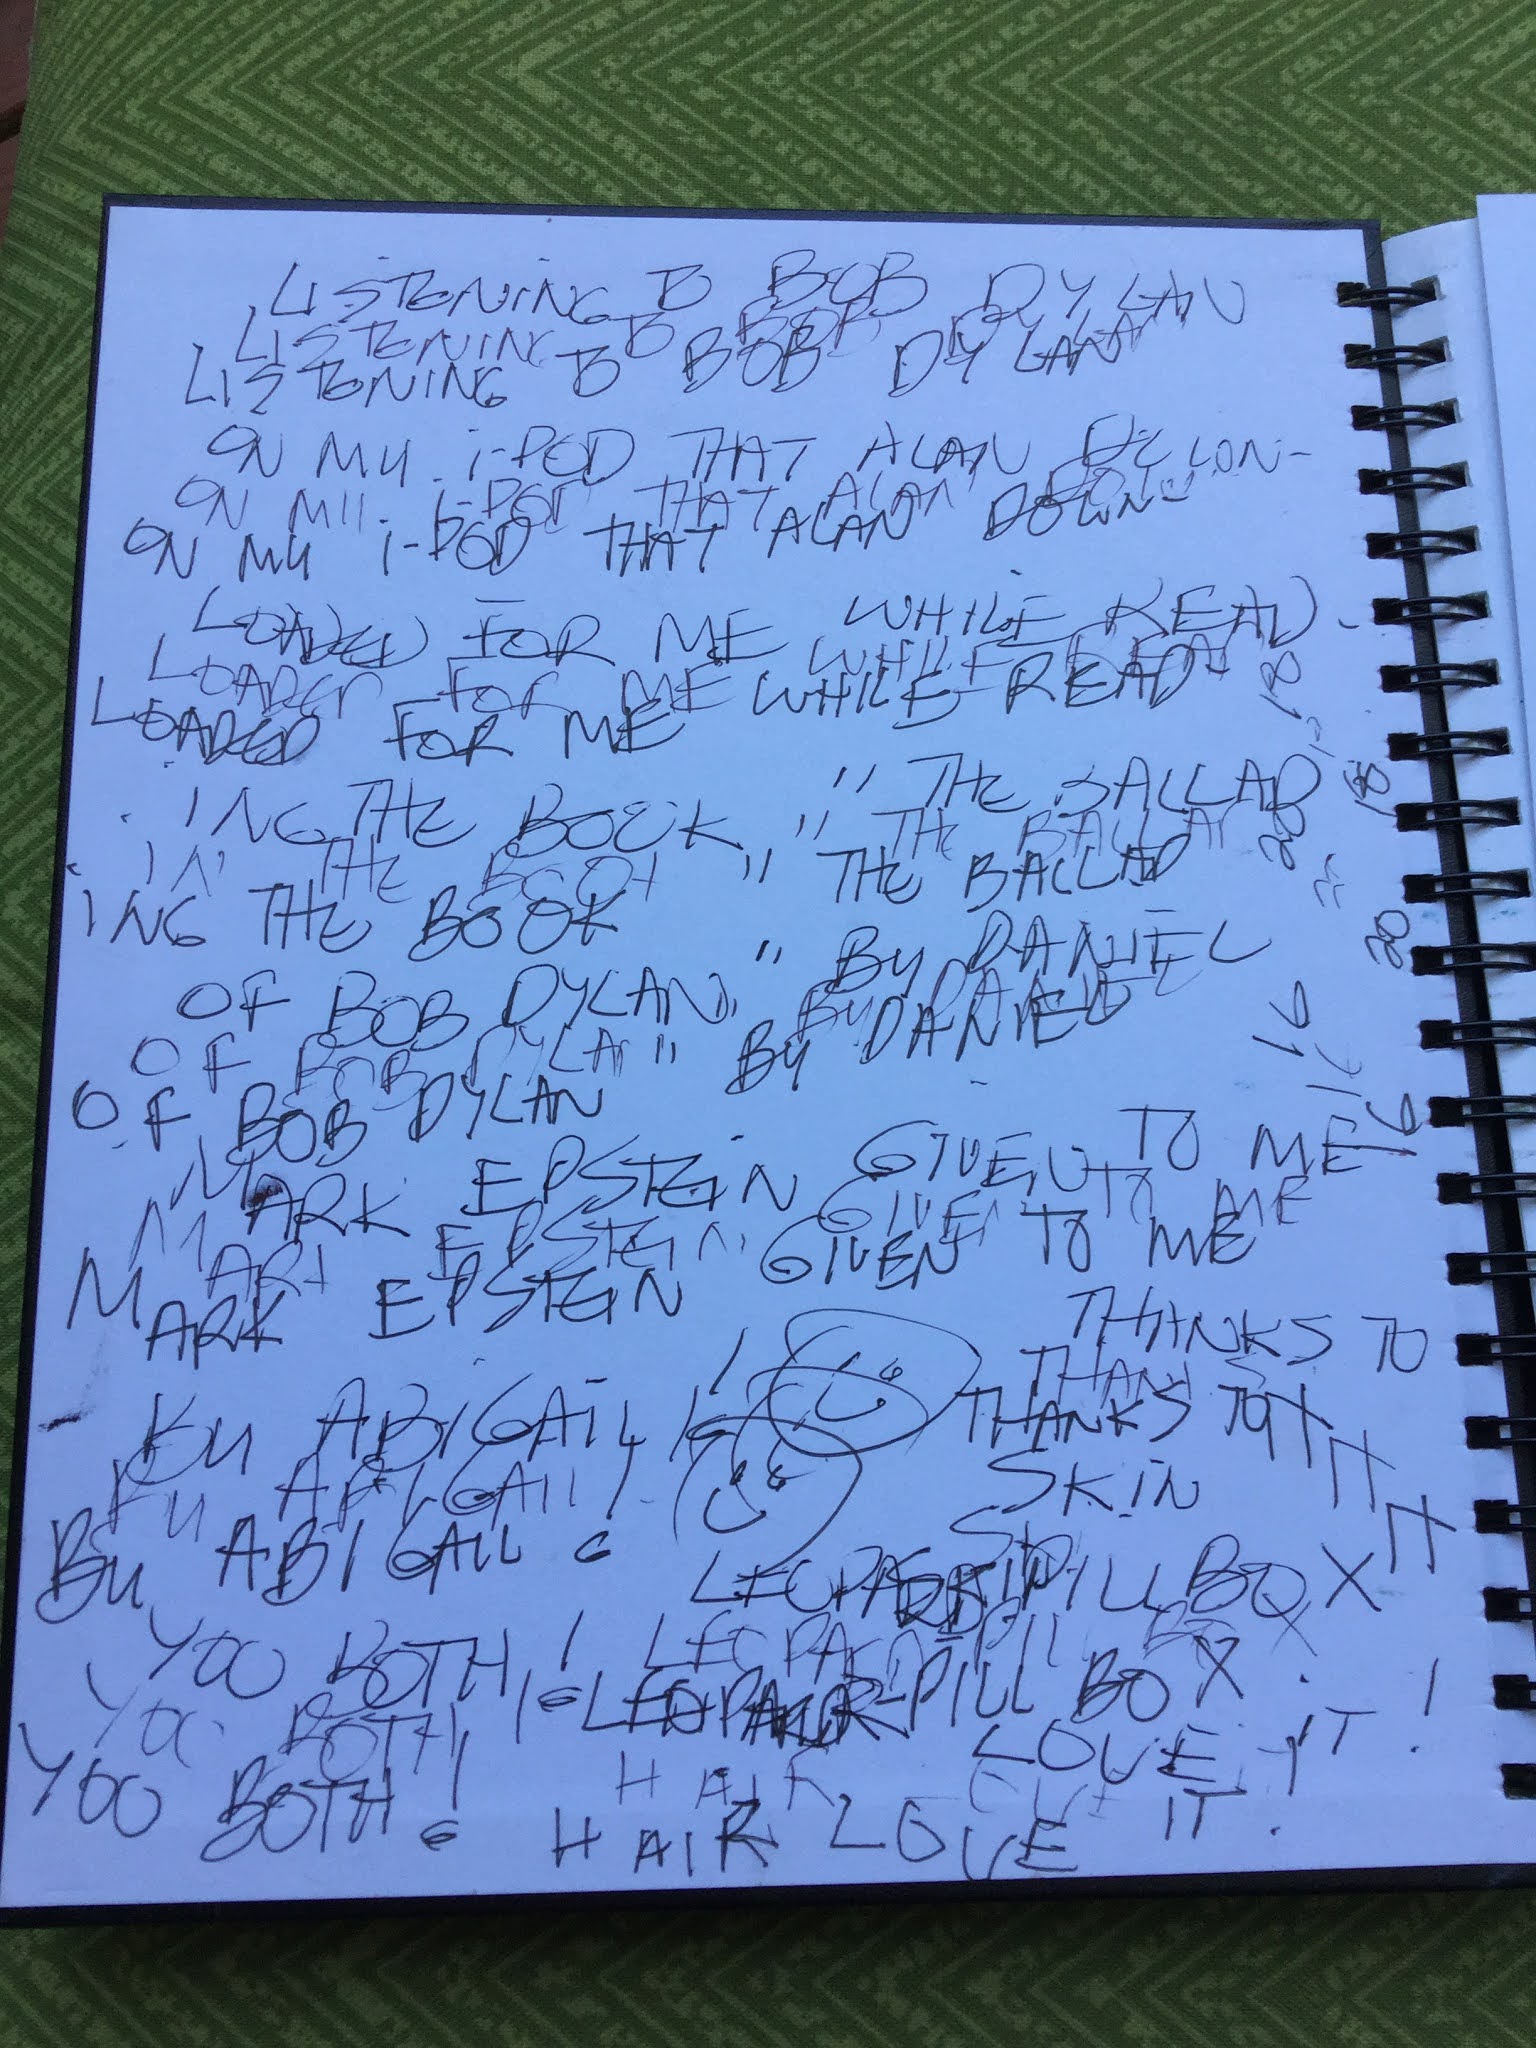 LISTENING TO BOB DYLAN
LISTENING TO BOB DYLAN
LISTENING TO BOB DYLAN
ON MY i-POD THAT ALAN DOWN-
ON MY i-POD THAT ALAN DOWN-
ON MY i-POD THAT ALAN DOWN-
LOADED FOR ME WHILE READ-
LOADED FOR ME WHILE READ-
LOADED FOR ME WHILE READ-
ING THE BOOK, "THE BALLAD
IN THE BOOK "THE BALLAD
ING THE BOOK "THE BALLAD
OF BOB DYLAN," BY DANIEL
OF BOB DYLAN" BY DANIEL
OF BOB DYLAN" BY DANIEL
MARK EPSTEIN GIVEN TO ME
MARK EPSTEIN GIVEN TO ME
MARK EPSTEIN GIVEN TO ME
BY ABIGAIL! THANKS TO
BY ABIGAIL! THANKS
BY ABIGAIL! THANKS TO
SKIN
YOU BOTH! LEOPARD PILL BOX
YOU BOTH! LEOPARD PILL BOX
YOU BOTH! LEOPARD-PILL BOX
LOVE IT!
HAIR LOVE IT!
HAIR LOVE IT!
18
18
20
20
16
16
16